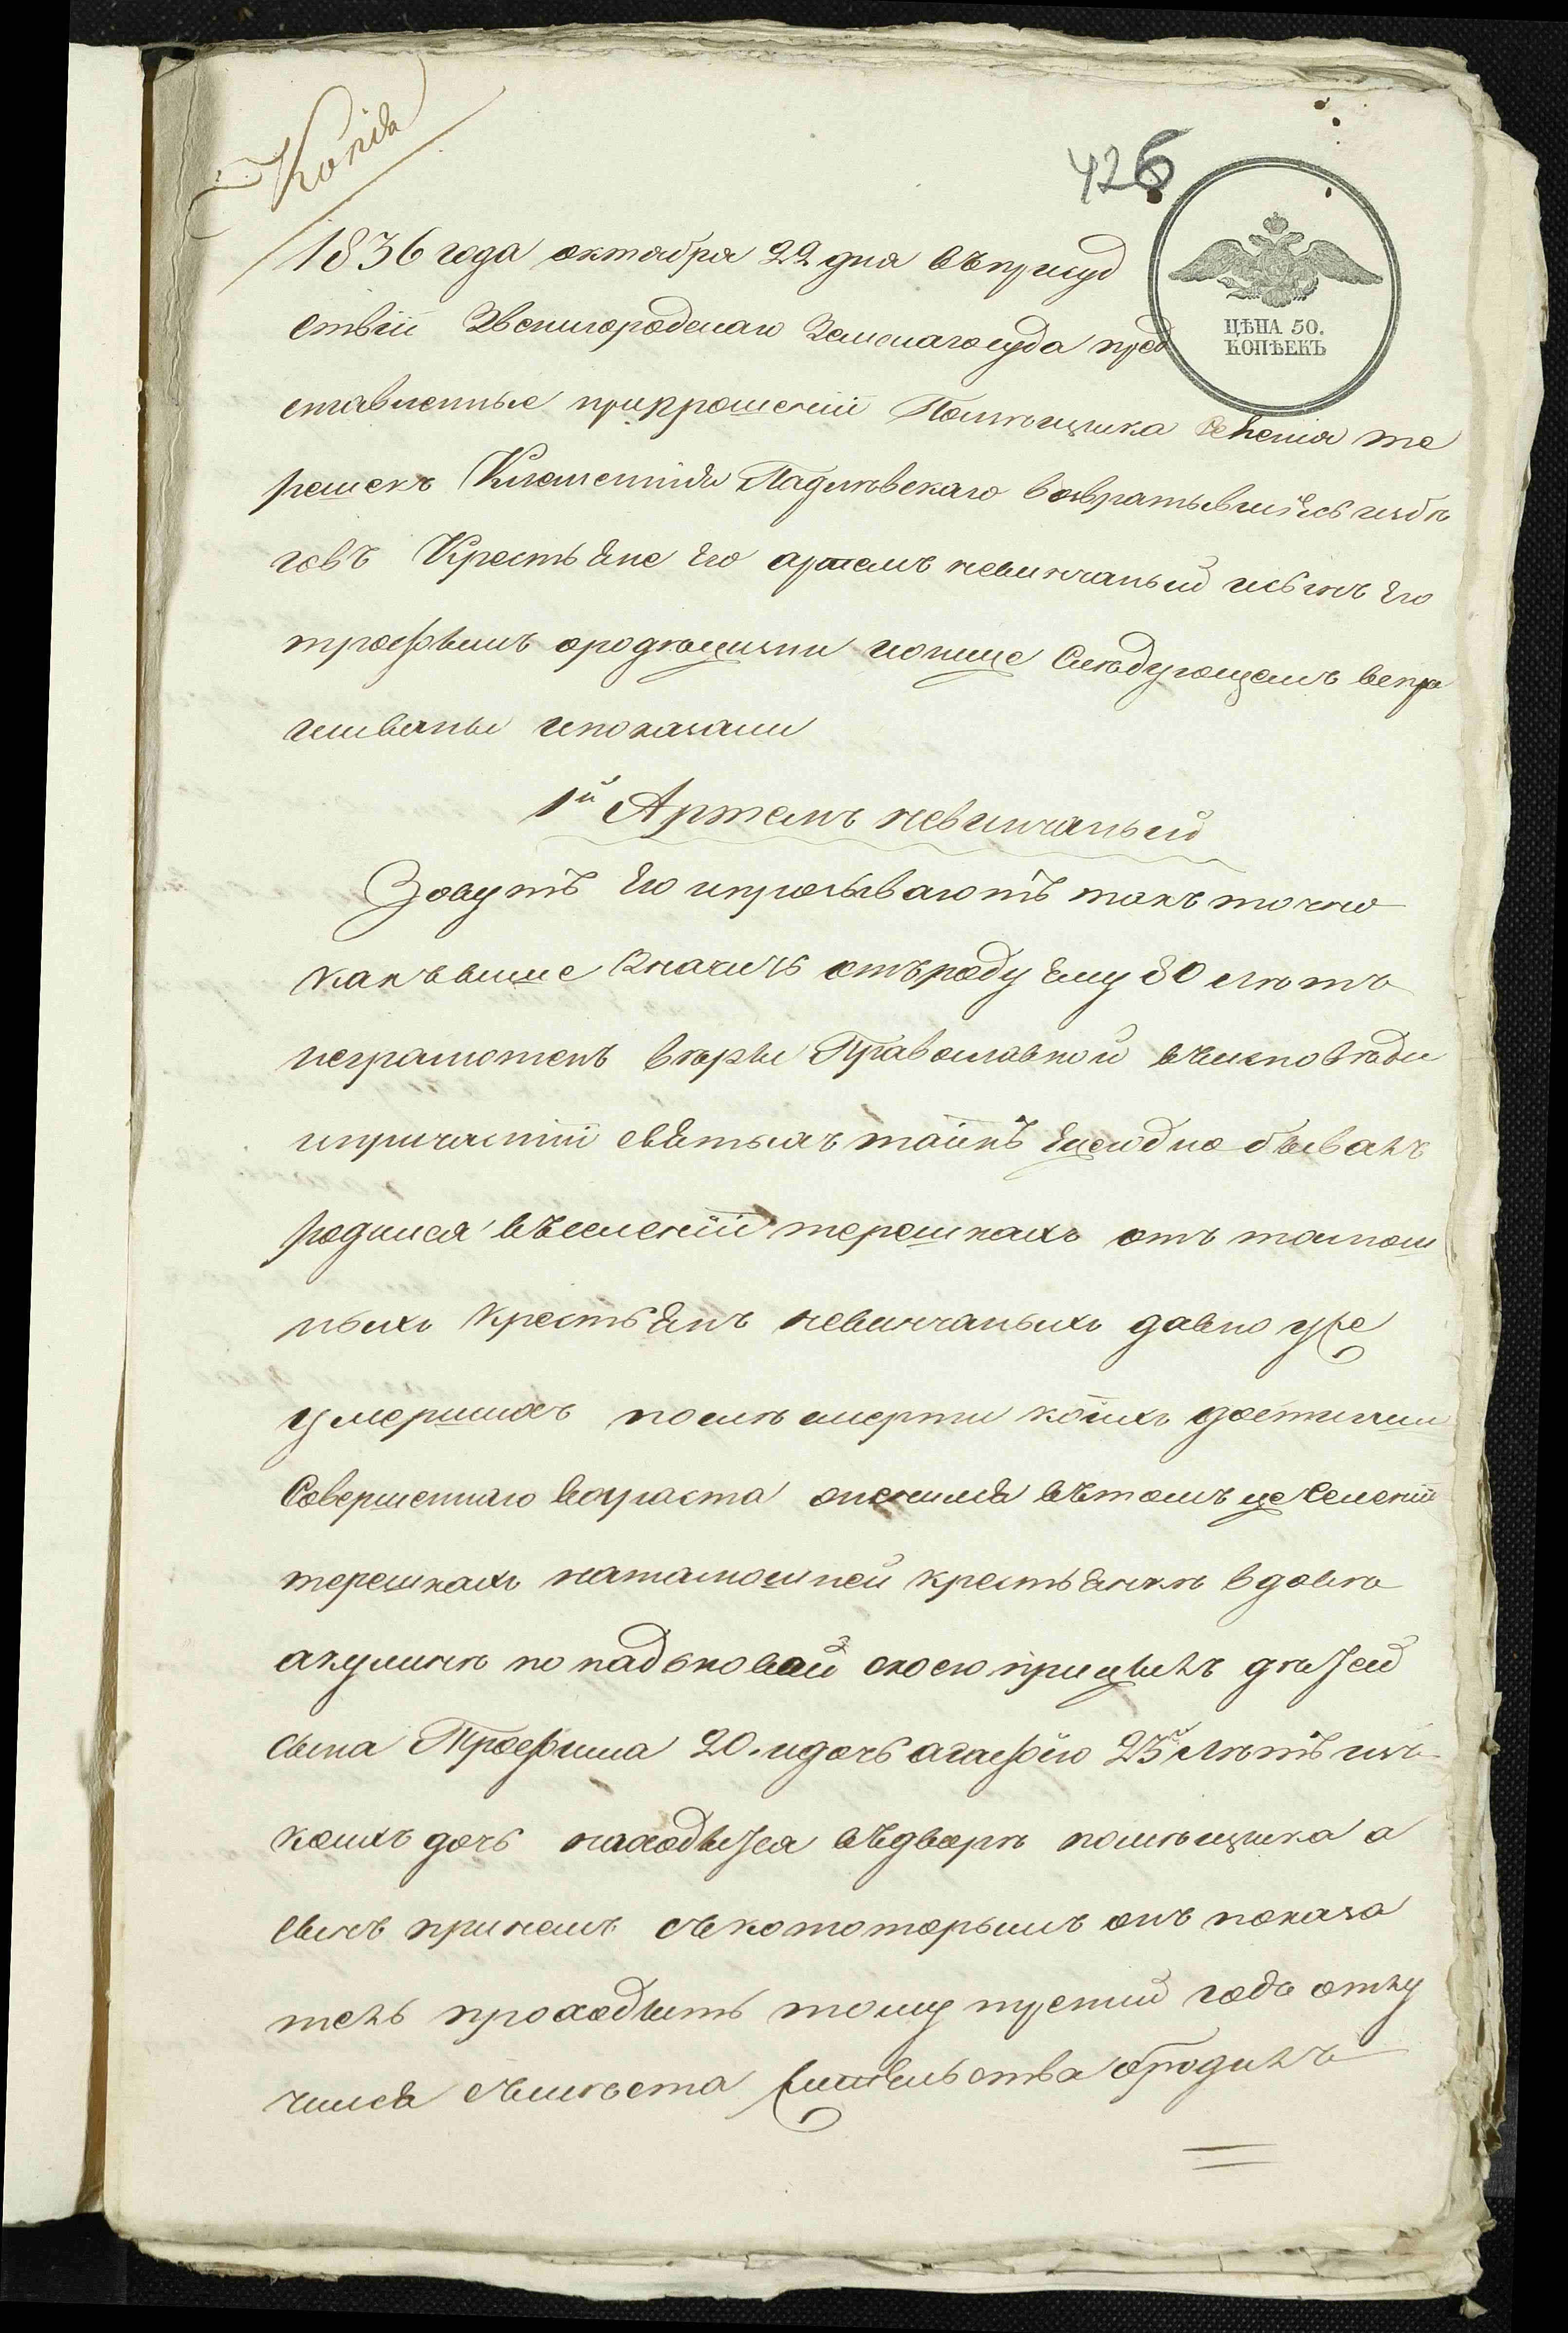 Копія
426
ЦѢНА 50.
КОПѢЕКЪ
1836 года октября 22 дня въ присуд
ствіи Звенигородскаго Земскаго суда пред
ставленные при прошеніи Помѣщика Селенія те
решекъ Клементія Падлевскаго возвратывшіесь избѣ
говъ Крестьяне Его артемъ невинчаный исынъ Его
трофымъ ородѣ жизни ионище Слѣдующемъ вспра
шиваны ипоказали
1й Артемъ невинчаный
Зовутъ Его ипрозываютъ такъ точно
какъ выше значитъ отъ роду Ему 80 лѣтъ
неграмотенъ вѣры Православной въисповѣди
ипричастіи святыхъ таинъ Ежегодно бывалъ
родился въселеніи терешкахъ отъ тамош
ныхъ крестьянъ невинчаныхъ давно уже
умершихъ послѣ смерти коихъ достигши
Совершеннаго возраста оженился вътомъ же Селеніи
терешкахъ натамошней крестьянкѣ вдовѣ
акулинѣ попадьковой скоею прижилъ дѣтей
сына Трофима 20. идочь агафію 23 лѣтъ изъ
коихъ дочь находытся въдворѣ помѣщика а
сынъ принемъ съкототорымъ онъ показа
тель проходытъ тому третий годъ отлу
чился съмѣста жительства бродилъ